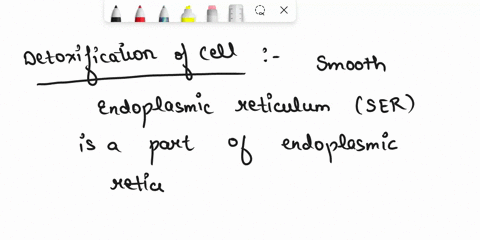 Detoxification of cell :- Smooth
Endoplasmic reticulum (SER)
is a part of endoplasmic
reticu